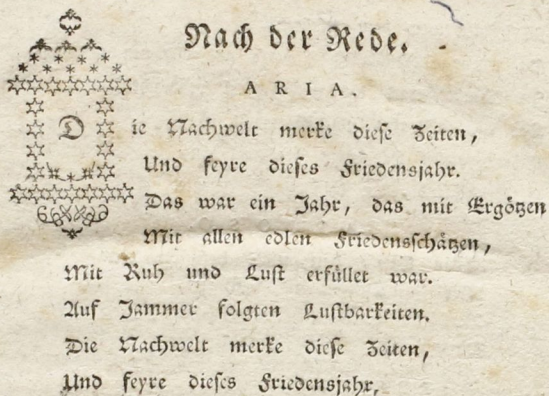 Nach der Rede.
ARIA.
Die Nachwelt merke diese Zeiten,
Und feyre dieses Friedensjahr.
Das war ein Jahr, das mit Ergötzen
Mit allen edlen Friedensschätzen,
Mit Ruh und Lust erfüllet war.
Auf Jammer folgten Lustbarkeiten.
Die Nachwelt merke diese Zeiten,
Und feyre dieses Friedensjahr,